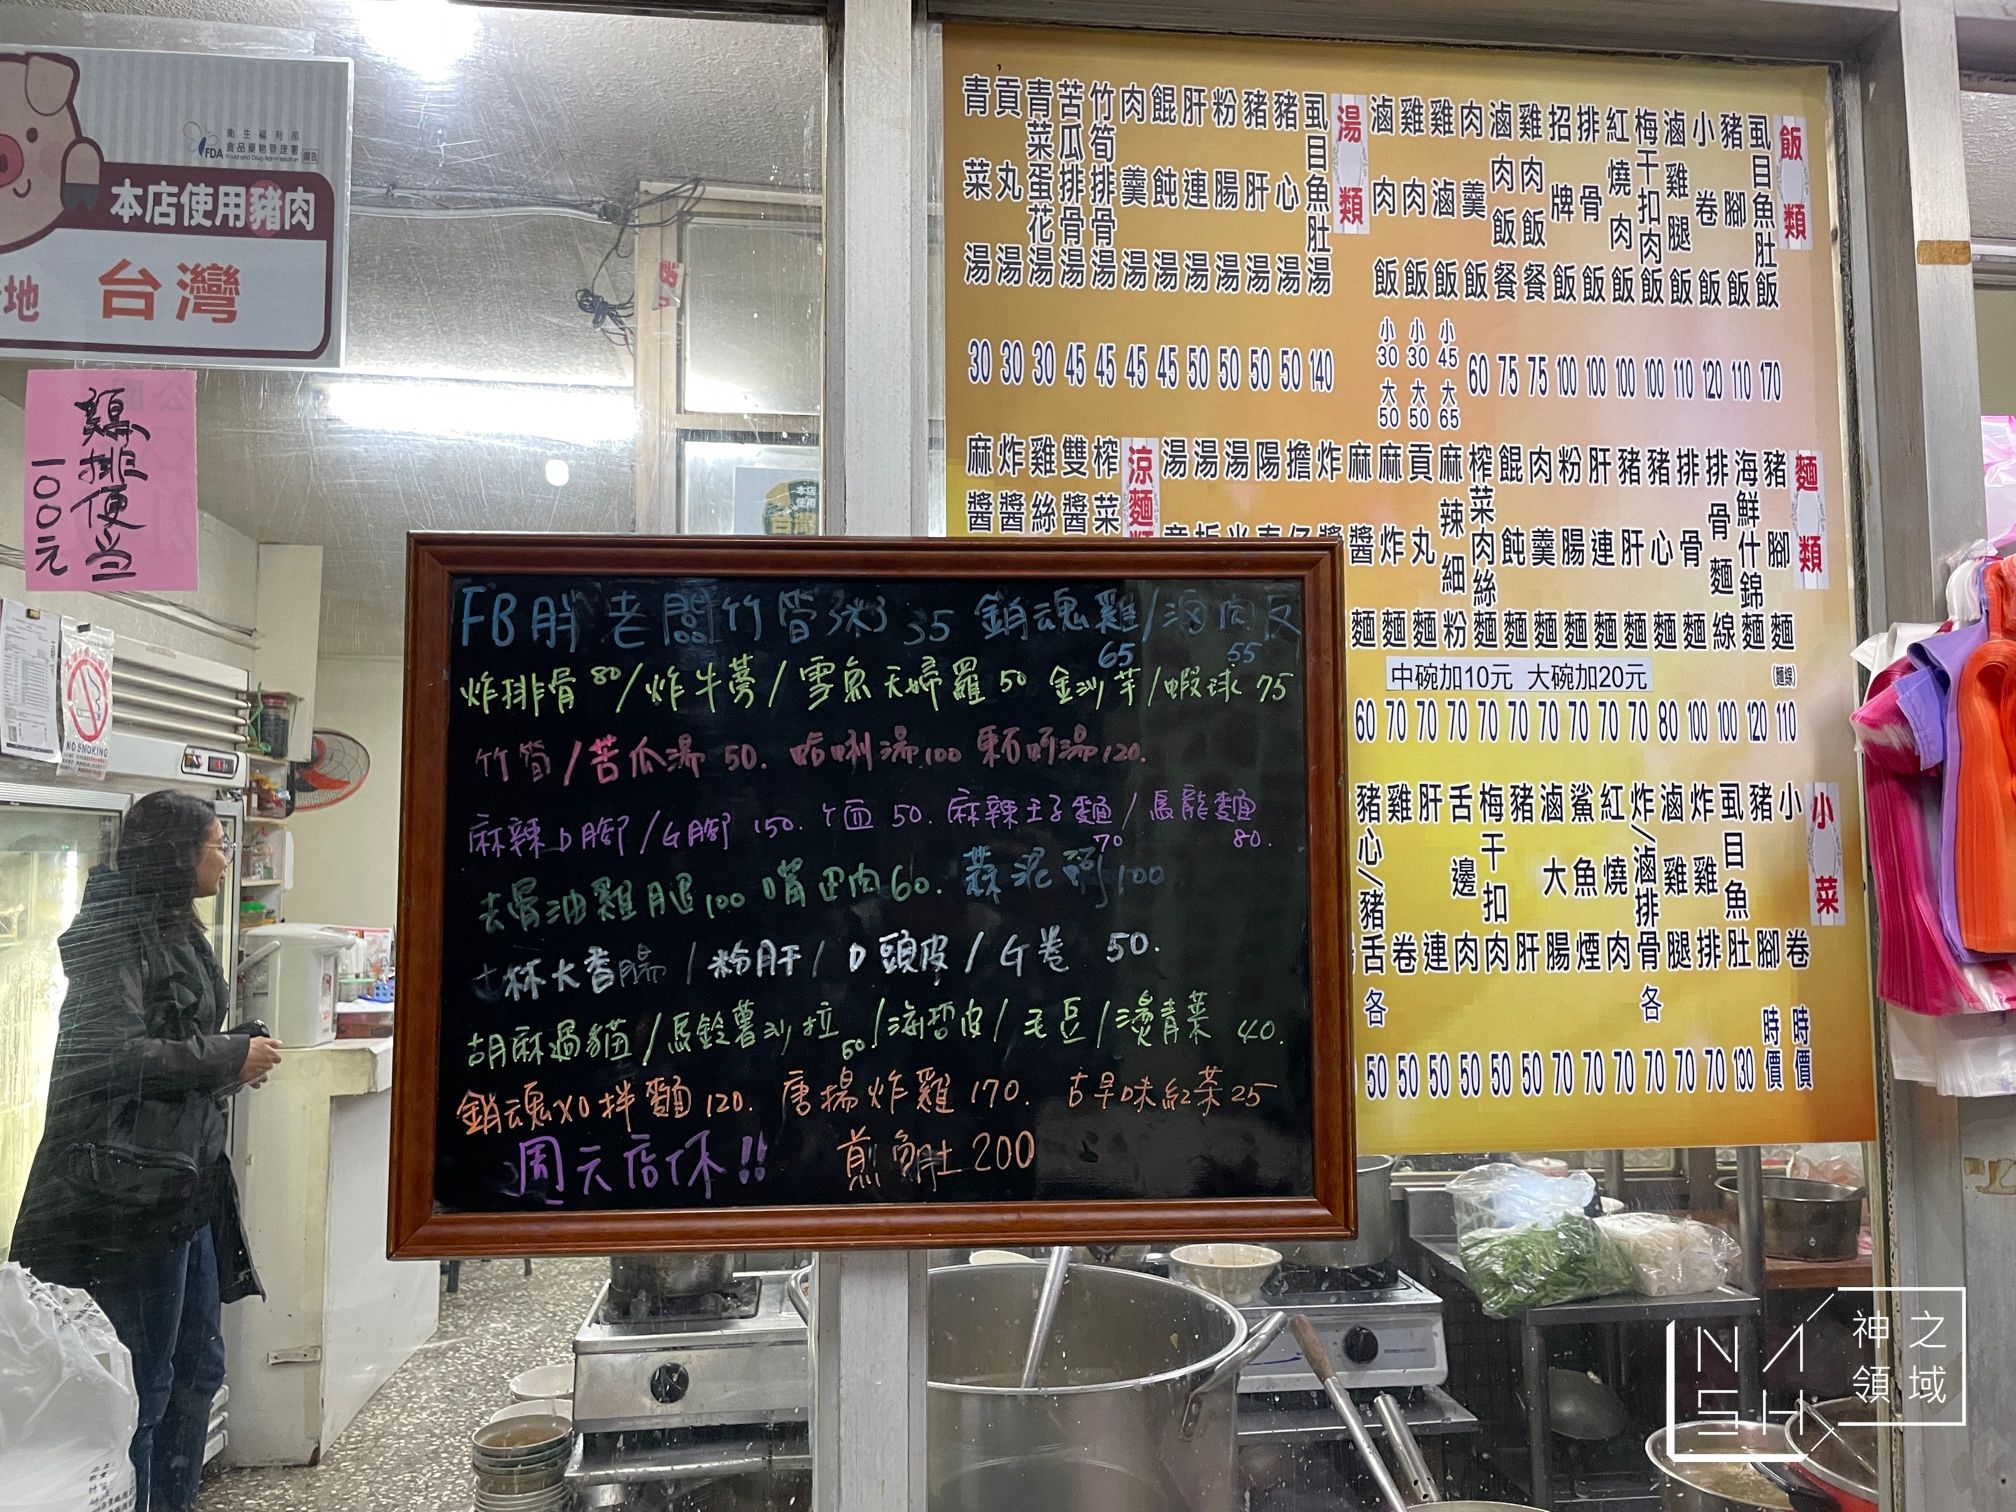 衛生福利部
食品藥物管理署
FDA Food and Drug Administration
本店使用豬肉
地 台灣
雞排便当
一00元
NO SMOKING
飯類
虱目魚肚飯 170
豬腳飯 110
小卷飯 120
滷雞腿飯 110
梅干扣肉飯 100
紅燒肉飯 100
排骨飯 100
招牌飯 100
雞肉飯餐 75
滷肉飯餐 75
肉羹飯 60
雞滷飯 小45 大65
雞肉飯 小30 大50
滷肉飯 小30 大50
湯類
虱目魚肚湯 140
豬心湯 50
豬肝湯 50
粉腸湯 50
肝連湯 50
餛飩湯 45
肉羹湯 45
竹筍排骨湯 45
苦瓜排骨湯 45
青菜蛋花湯 30
貢丸湯 30
青菜湯 30
麵類
豬腳麵 (麵線) 110
海鮮什錦麵 120
排骨麵線 100
排骨麵 100
豬心麵 80
豬肝麵 70
肝連麵 70
粉腸麵 70
肉羹麵 70
餛飩麵 70
榨菜肉絲麵 70
麻辣細粉 70
貢丸麵 70
麻炸麵 70
麻醬麵 60
炸醬
擔仔
陽
湯
湯
湯
中碗加10元 大碗加20元
涼麵
榨菜
雙醬
雞絲
炸醬
麻醬
小菜
小卷 時價
豬腳 時價
虱目魚肚 130
炸雞排 70
滷雞腿 70
炸/滷排骨 各 70
紅燒肉 70
鯊魚煙 70
滷大腸 70
豬肝 50
梅干扣肉 50
舌邊肉 50
肝連 50
雞卷 50
豬心/豬舌 各 50
FB胖老闆竹筍粥 35 銷魂雞/滷肉反
65 55
炸排骨 80/炸牛蒡/雪魚天婦羅 50 金沙芋/蝦球 75
竹筍/苦瓜湯 50. 蛤蜊湯 100 湯 120.
麻辣D腳/G腳 150. 50. 麻辣王子麵/烏龍麵
70 80.
去骨油雞腿 100 嘴边肉 60. 蒜泥 100
士林大香腸/粉肝/D頭皮/G卷 50.
胡麻過貓/馬鈴薯沙拉 50/海哲皮/毛豆/燙青菜 40.
銷魂XO拌麵 120. 唐揚炸雞 170. 古早味紅茶 25
周六店休!! 煎魚肚 200
NASH
神之領域